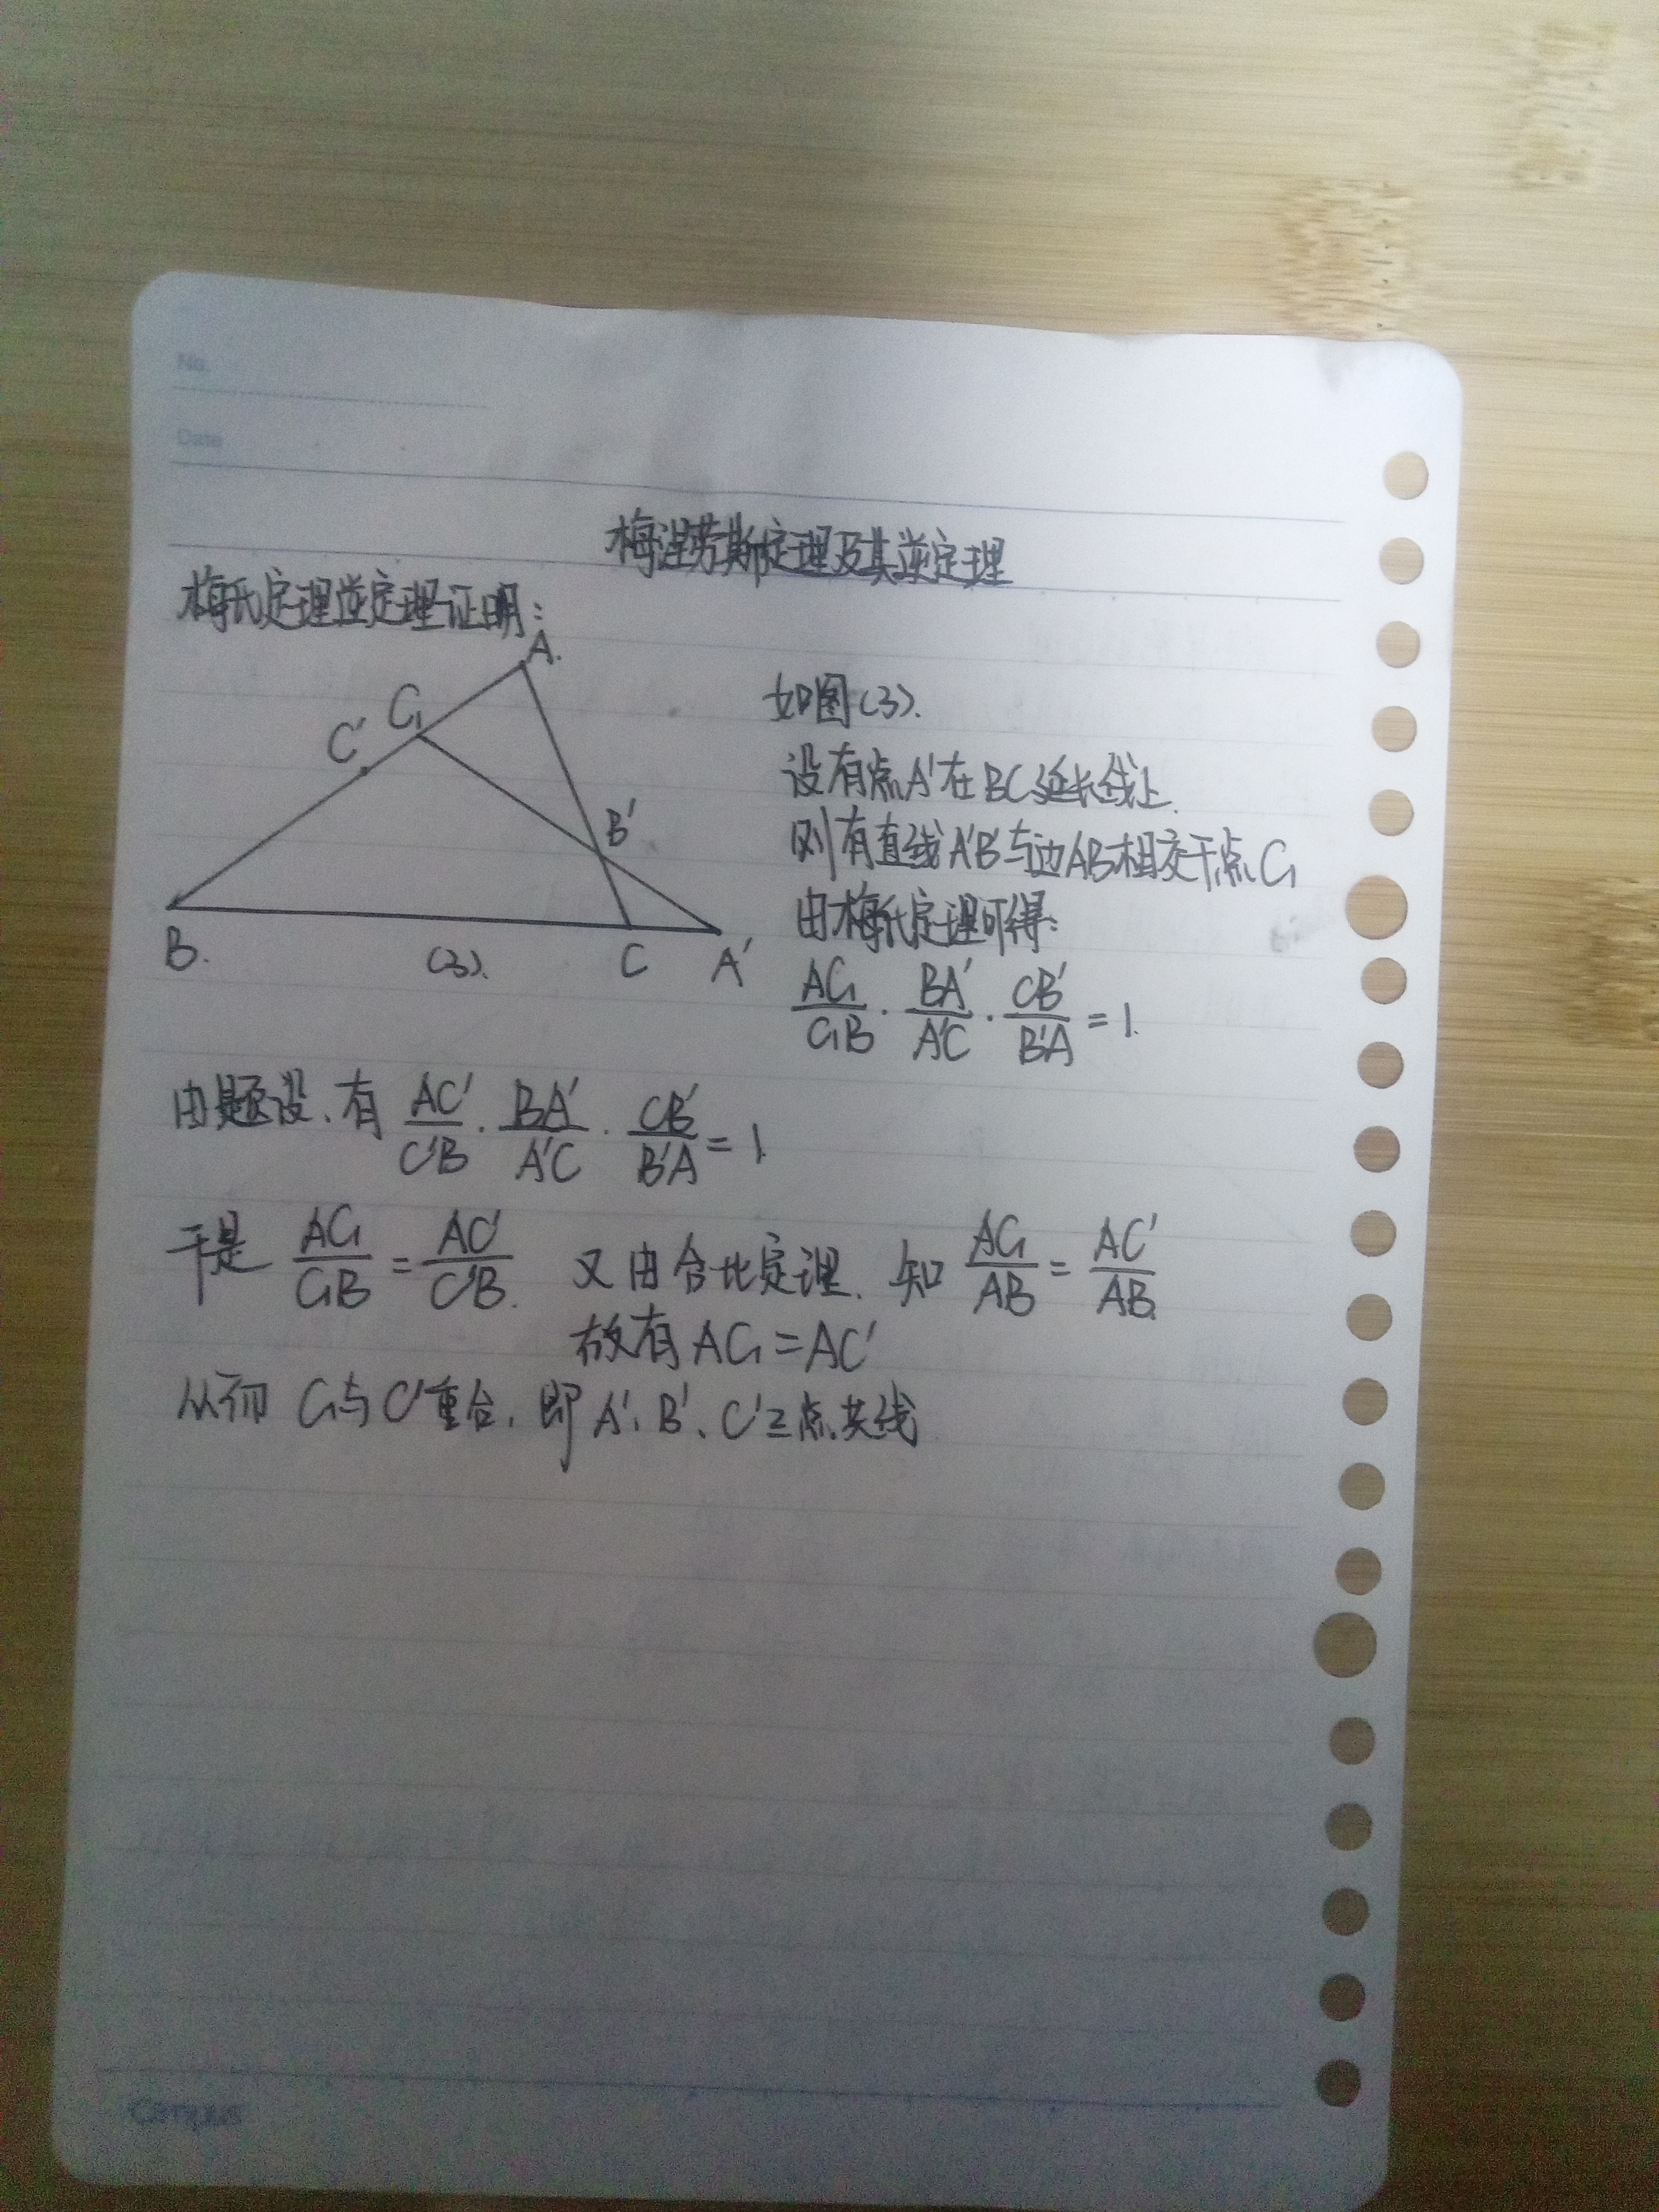 No.
Date
梅涅劳斯定理及其逆定理
梅氏定理逆定理证明：
A.
C₁
C'
B'
B.
(3).
C
A'
如图(3).
设有点A'在BC延长线上.
则有直线A'B'与边AB相交于点C₁
由梅氏定理可得：
AC₁/C₁B · BA'/A'C · CB'/B'A = 1.
由题设、有 AC'/C'B · BA'/A'C · CB'/B'A = 1
于是 AC₁/C₁B = AC'/C'B. 又由合比定理、知 AC₁/AB = AC'/AB.
故有AC₁=AC'
从而 C₁与C'重合、即 A'、B'、C'三点共线
Campus